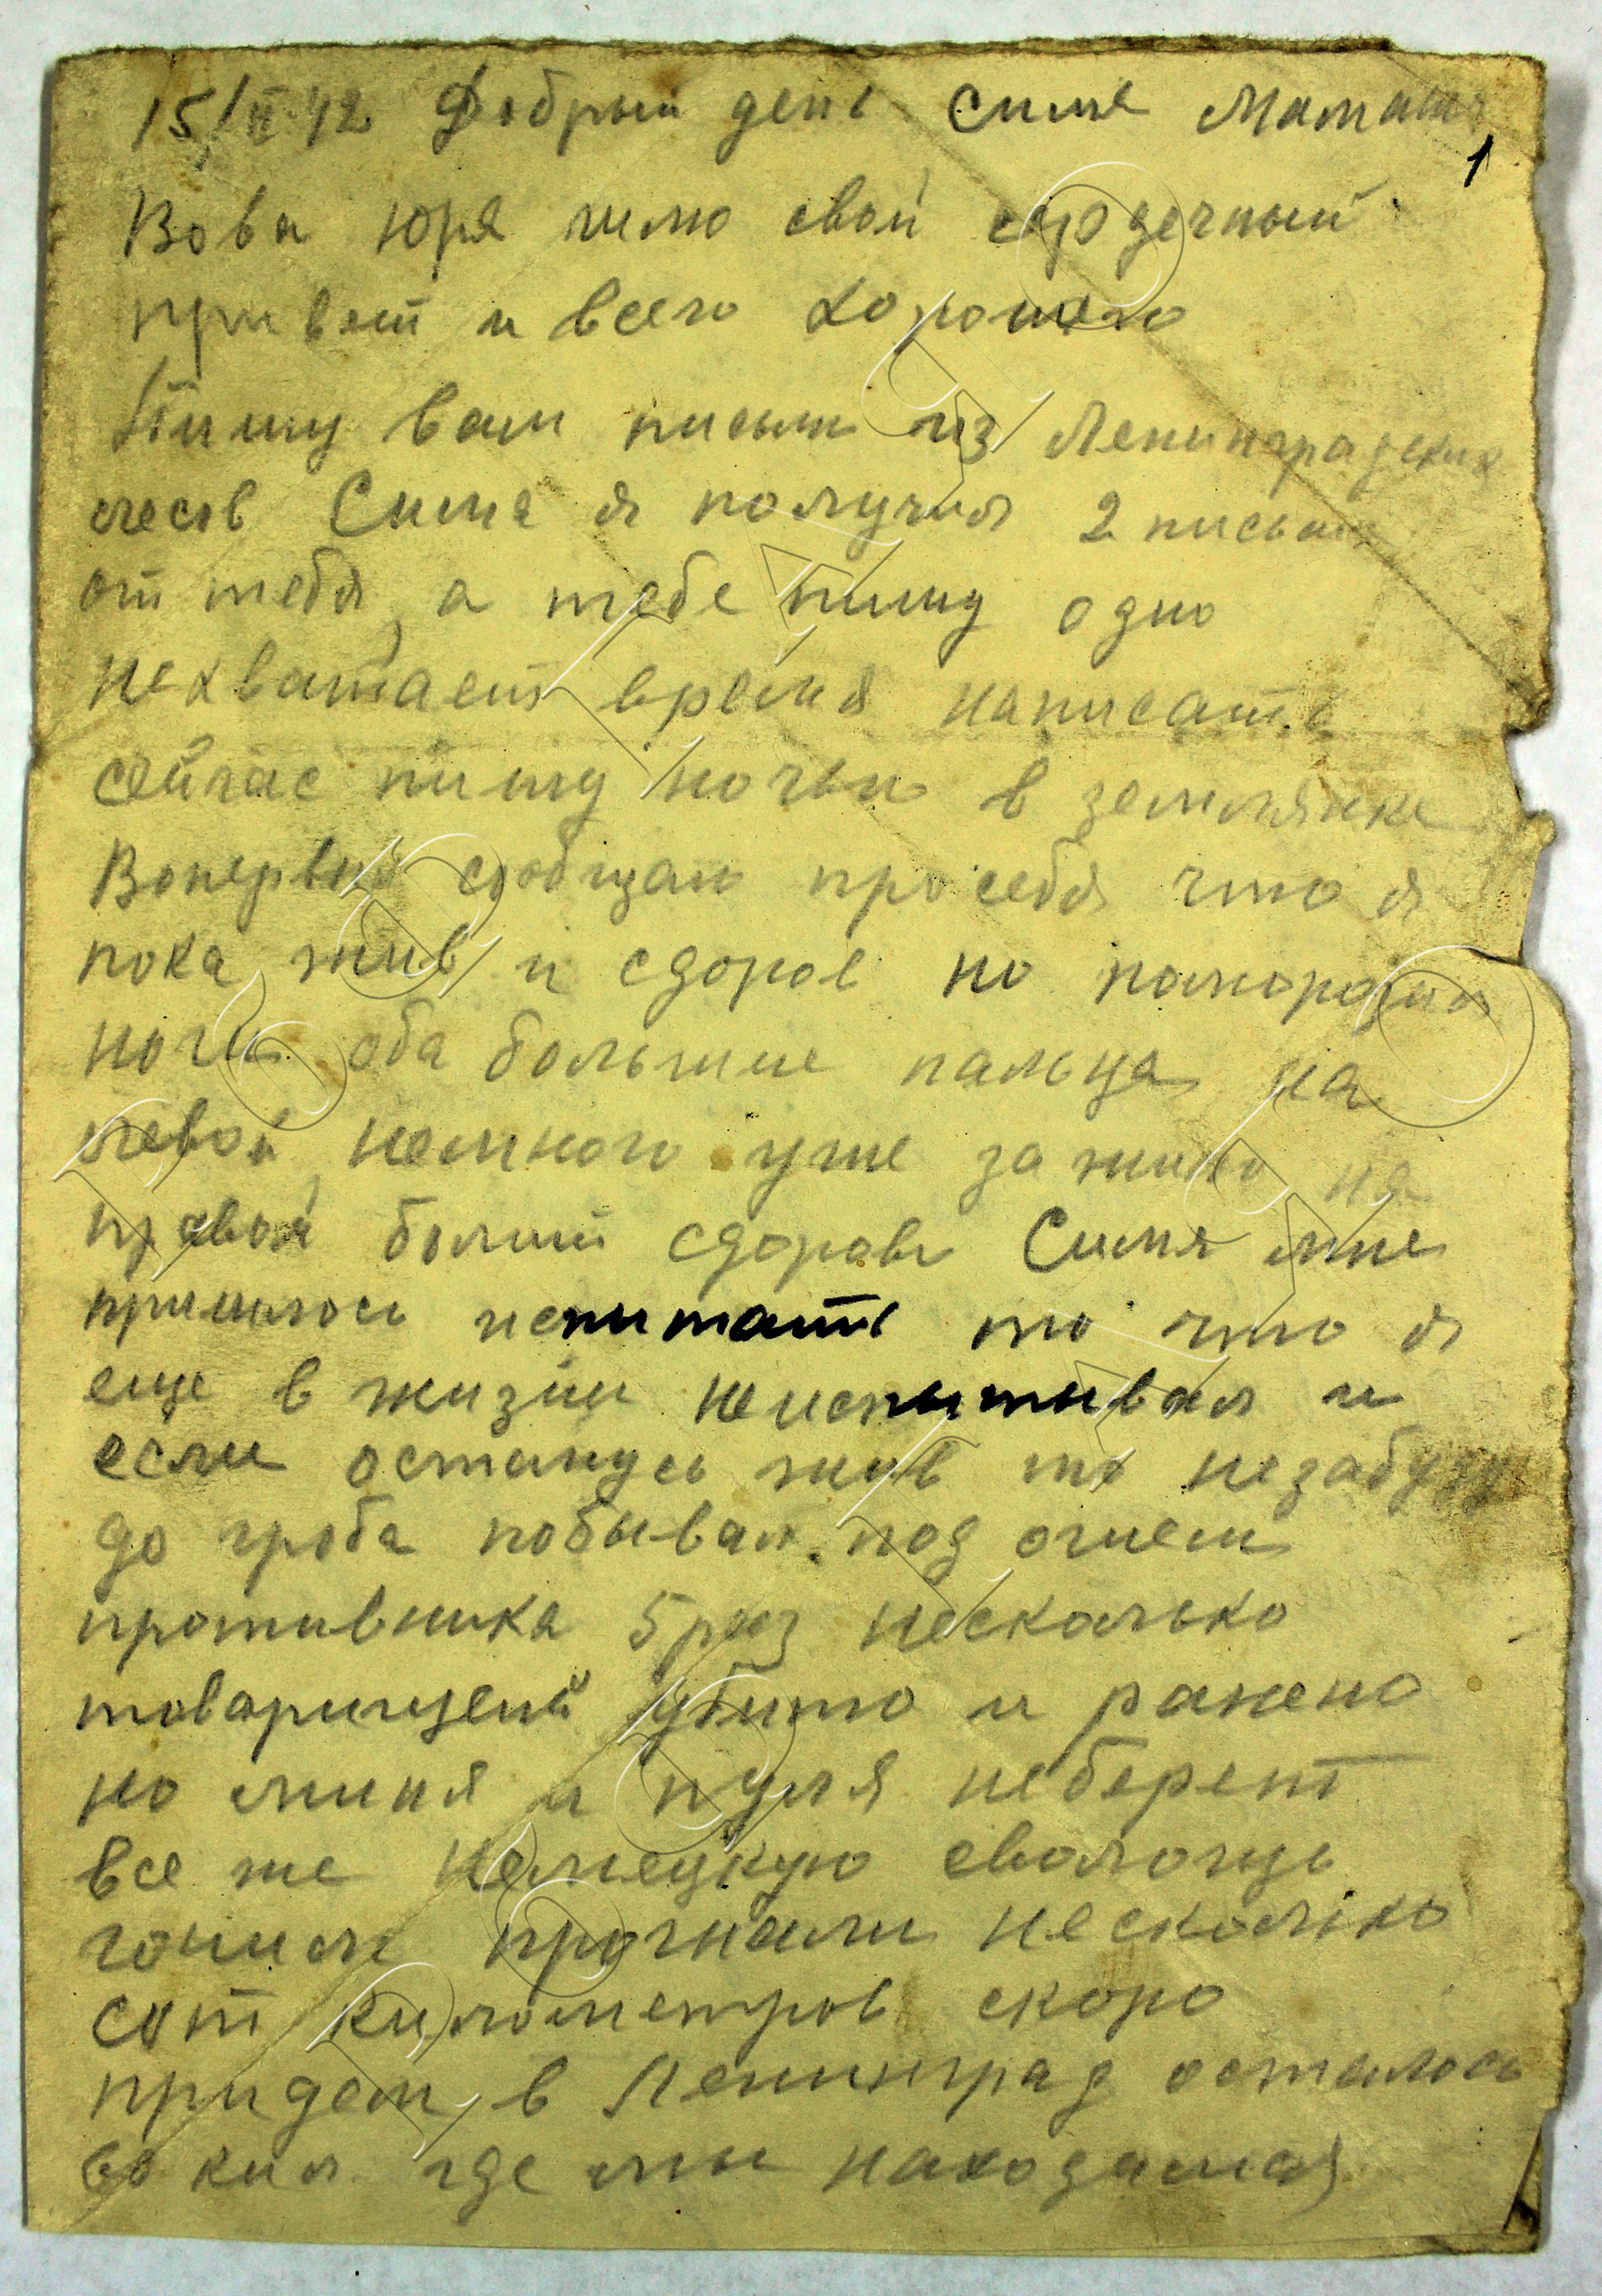 15/II 42 Добрый день Сима Мамаша
1
Вова Юря шлю свой сердечный
привет и всего хорошего
Пишу вам письмо из Ленинградских
лесов Сима я получил 2 письма
от тебя, а тебе пишу одно
нехватает время написать
сейчас пишу ночью в землянке
Вопервых сообщаю просебя что я
пока жив и сдоров но поморозил
ноги оба большие пальца на
левой немного уже зажило на
правой болит сдорова Сима мне
пришлось испитать то что я
еще в жизни неиспытывал и
если останусь жив то незабуду
до гроба побывал под огнем
противника 5 раз несколько
товарищей убито и ранено
но миня и пуля неберет
все же немецкую сволощь
гоним прогнали несколько
сот километров скоро
придем в Ленинград осталось
60 кил где мы находимся